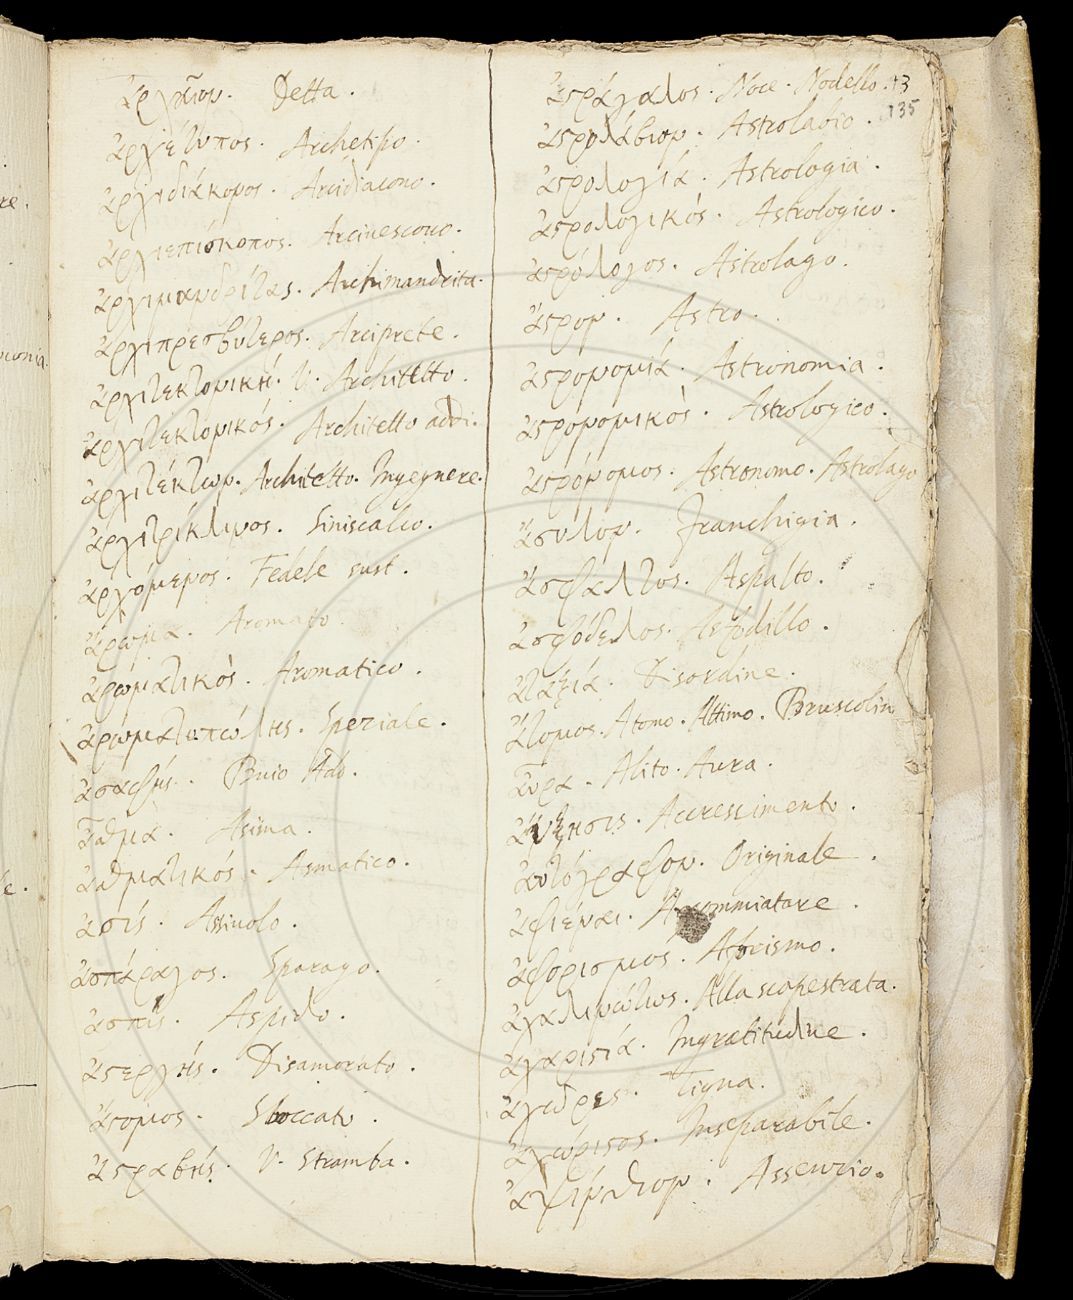 Detta.
ἀρχέτυπος. Archetipo.
ἀρχιδιάκονος. Arcidiacono.
ἀρχιεπίσκοπος. Arcivescovo.
ἀρχιμανδρίτας. Archimandrita.
ἀρχιπρεσβύτερος. Arciprete.
ἀρχιτεκτονική. V. Architetto.
ἀρχιτεκτονικός. Architetto addi.
ἀρχιτέκτων. Architetto. Ingegnere.
ἀρχιτρίκλινος. Siniscalco.
ἀρχόμενος. Fedele sust.
ἄρωμα. Aromato.
ἀρωματικὸς. Aromatico.
ἀρωματοπώλης. Speziale.
ἀσαφής. Buio Add.
ἆσθμα. Asima.
ἀσθματικός. Asmatico.
ἀσίς. Assiuolo.
ἀσπάραγος. Sparago.
ἀσπίς. Aspido.
ἀστεργής. Disamorato.
ἄστομος. Sboccato.
ἀστραβής. V. Stramba.
ἀστράγαλος. Noce. Nodello. 13
135
ἀστρολάβιον. Astrolabio.
ἀστρολογία. Astrologia.
ἀστρολογικός. Astrologico.
ἀστρόλογος. Astrolago.
ἄστρον. Astro.
ἀστρονομία. Astronomia.
ἀστρονομικὸς. Astrologico.
ἀστρόνομος. Astronomo. Astrolago
ἄσυλον. Franchigia.
ἄσφαλτος. Aspalto.
ἀσφόδελος. Asfodillo.
ἀταξία. Disordine.
ἄτομος. Atomo. Attimo. Bruscolin
αὔρα. Alito. Aura.
αὔξησις. Accrescimento.
αὐτόγραφον. Originale.
ἀφιέναι. Accommiatare.
ἀφορισμος. Aforismo.
ἀχαλινώτως. Alla scapestrata.
ἀχαριστία. Ingratitudine.
Tigna.
ἀχώριστος. Inseparabile.
ἀψίνθιον. Assenzio.